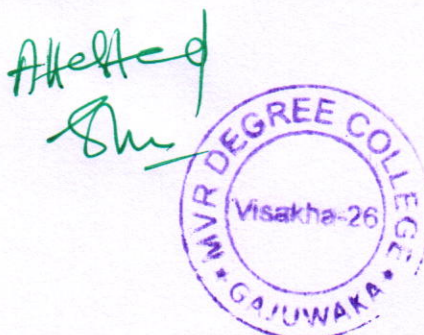 Attested
MVR DEGREE COLLEGE
Visakha-26
* GAJUWAKA *